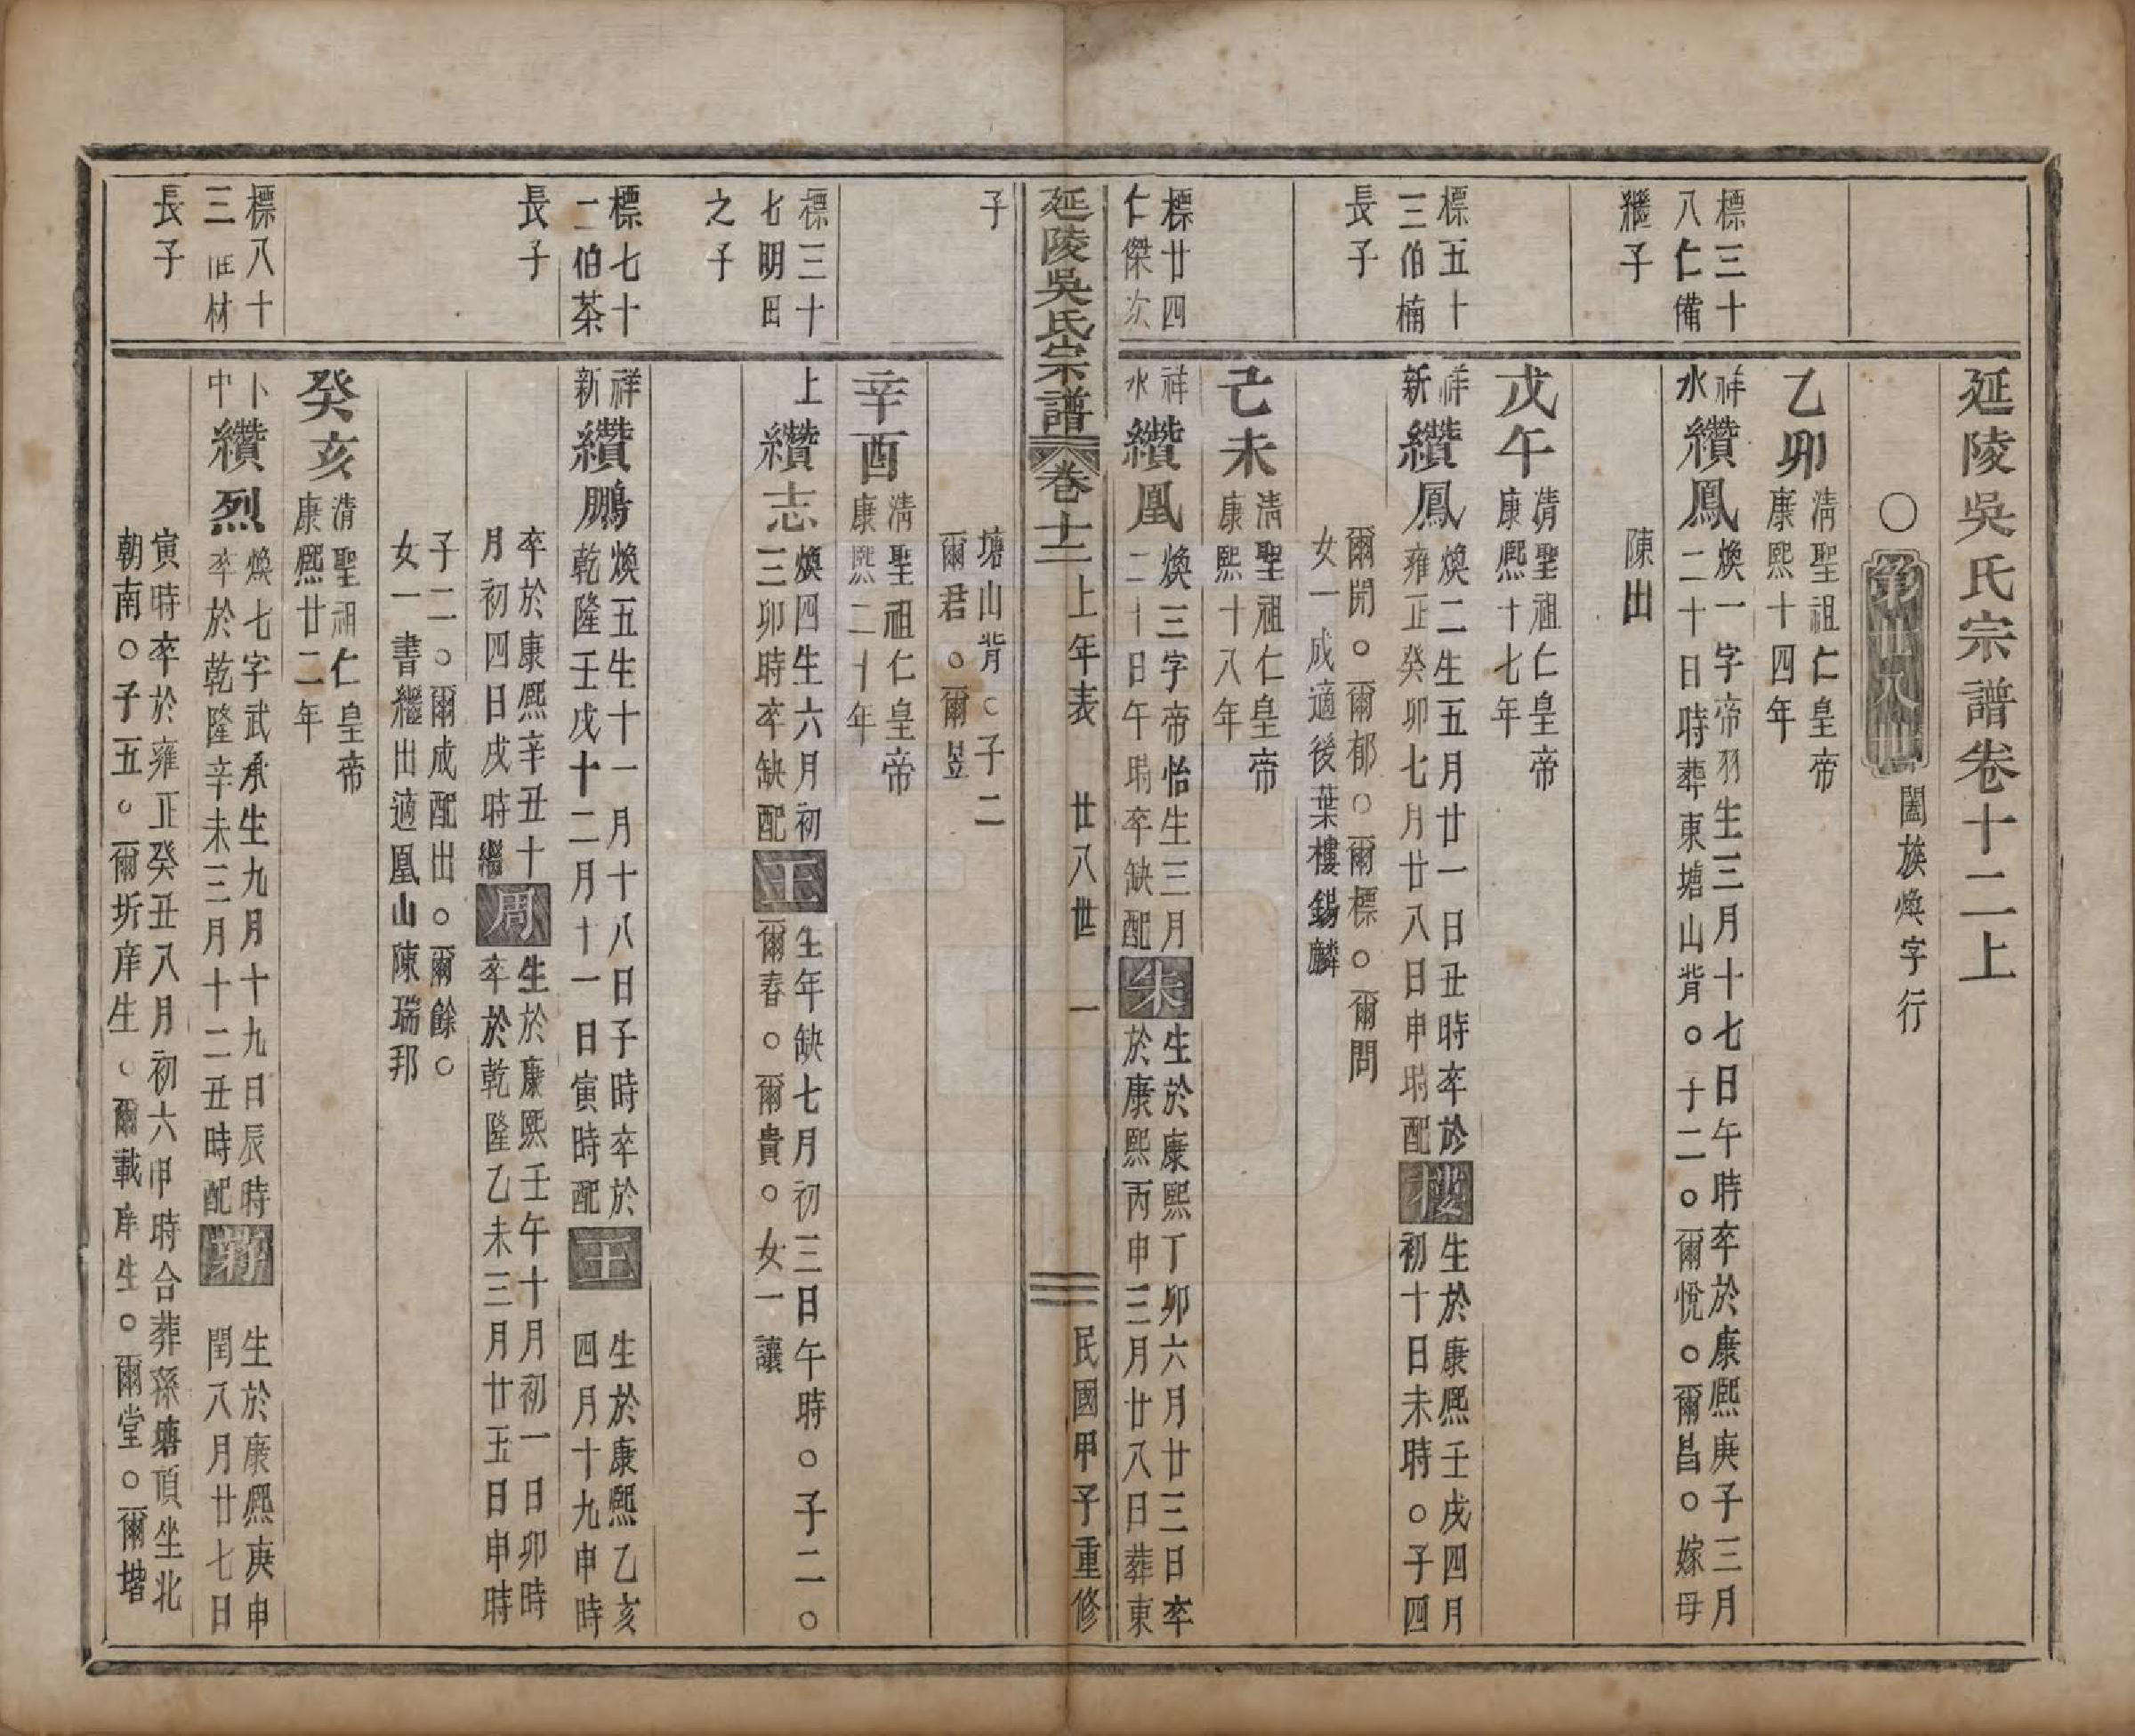 延陵吳氏宗譜卷十二上
○第廿八世 闔族煥字行
乙卯 清聖祖仁皇帝
康熙十四年
標三十
八仁備
繼子
祥水 纘鳳 煥一字帝羽生三月十七日午時卒於康熙庚子三月
二十日時葬東塘山背○子二○爾悅○爾昌○嫁母
陳出
戊午 清聖祖仁皇帝
康熙十七年
標五十
三伯楠
長子
祥新 纘鳳 煥二生五月廿一日丑時卒於
雍正癸卯七月廿八日申時配 樓 生於康熙壬戌四月
初十日未時○子四
爾開○爾郁○爾標○爾問
女一成適後葉樓錫麟
己未 清聖祖仁皇帝
康熙十八年
標廿四
仁傑次
子
祥水 纘凰 煥三字帝怡生三月
二十日午時卒缺配 朱 生於康熙丁卯六月廿三日卒
於康熙丙申三月廿八日葬東
延陵吳氏宗譜 卷十二上年表 廿八世 一 民國甲子重修
塘山背○子二
爾君○爾昱
辛酉 清聖祖仁皇帝
康熙二十年
標三十
七明田
之子
上 纘志 煥四生六月初
三卯時卒缺配 王 生年缺七月初三日午時○子二○
爾春○爾貴○女一讓
標七十
二伯茶
長子
祥新 纘鵬 煥五生十一月十八日子時卒於
乾隆壬戌十二月十一日寅時配 王 生於康熙乙亥
四月十九申時
卒於康熙辛丑十
月初四日戌時繼 周 生於康熙壬午十月初一日卯時
卒於乾隆乙未三月廿五日申時
子二○爾成配出○爾餘○
女一書繼出適凰山陳瑞邦
癸亥 清聖祖仁皇帝
康熙廿二年
標八十
三 材
長子
卜中 纘烈 煥七字武承生九月十九日辰時
卒於乾隆辛未三月十二丑時配 生於康熙庚申
閏八月廿七日
寅時卒於雍正癸丑八月初六甲時合葬孫塘頂坐北
朝南○子五○爾圻庠生○爾載庠生○爾堂○爾堦